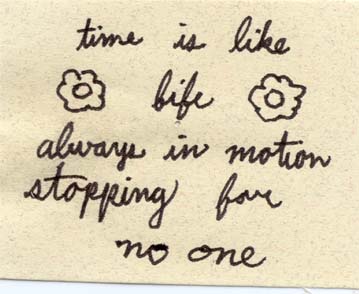 time is like
life
always in motion
stopping for
no one